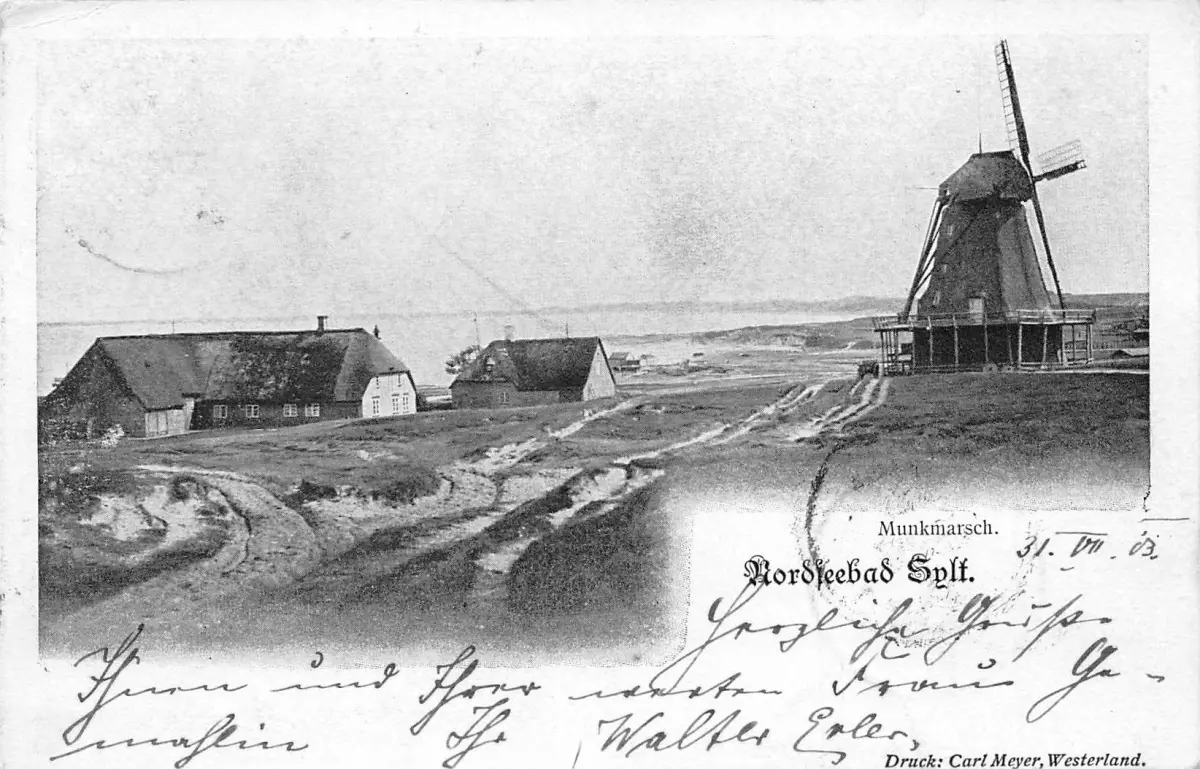 Munkmarsch.
Nordseebad Sylt.
31. VII. 03.
Herzliche Grüße
Ihnen und Ihrer werten Frau Ge-
mahlin Ihr Walter Erler.
Druck: Carl Meyer, Westerland.